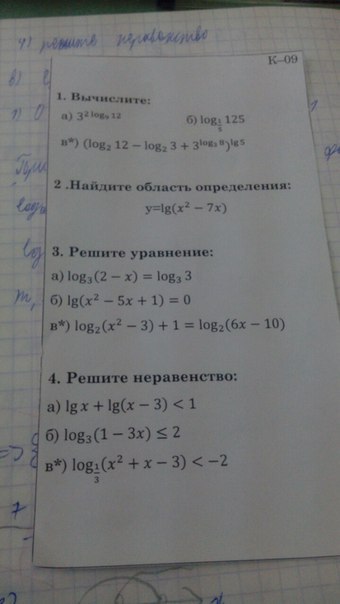 4) решите неравенство
К–09
1. Вычислите:
а) 3^{2 log₉ 12} б) log_{1/5} 125
в*) (log₂ 12 − log₂ 3 + 3^{log₃ 8})^{lg 5}
2 .Найдите область определения:
y=lg(x² − 7x)
3. Решите уравнение:
а) log₃(2 − x) = log₃ 3
б) lg(x² − 5x + 1) = 0
в*) log₂(x² − 3) + 1 = log₂(6x − 10)
4. Решите неравенство:
а) lg x + lg(x − 3) < 1
б) log₃(1 − 3x) ≤ 2
в*) log_{1/3}(x² + x − 3) < −2